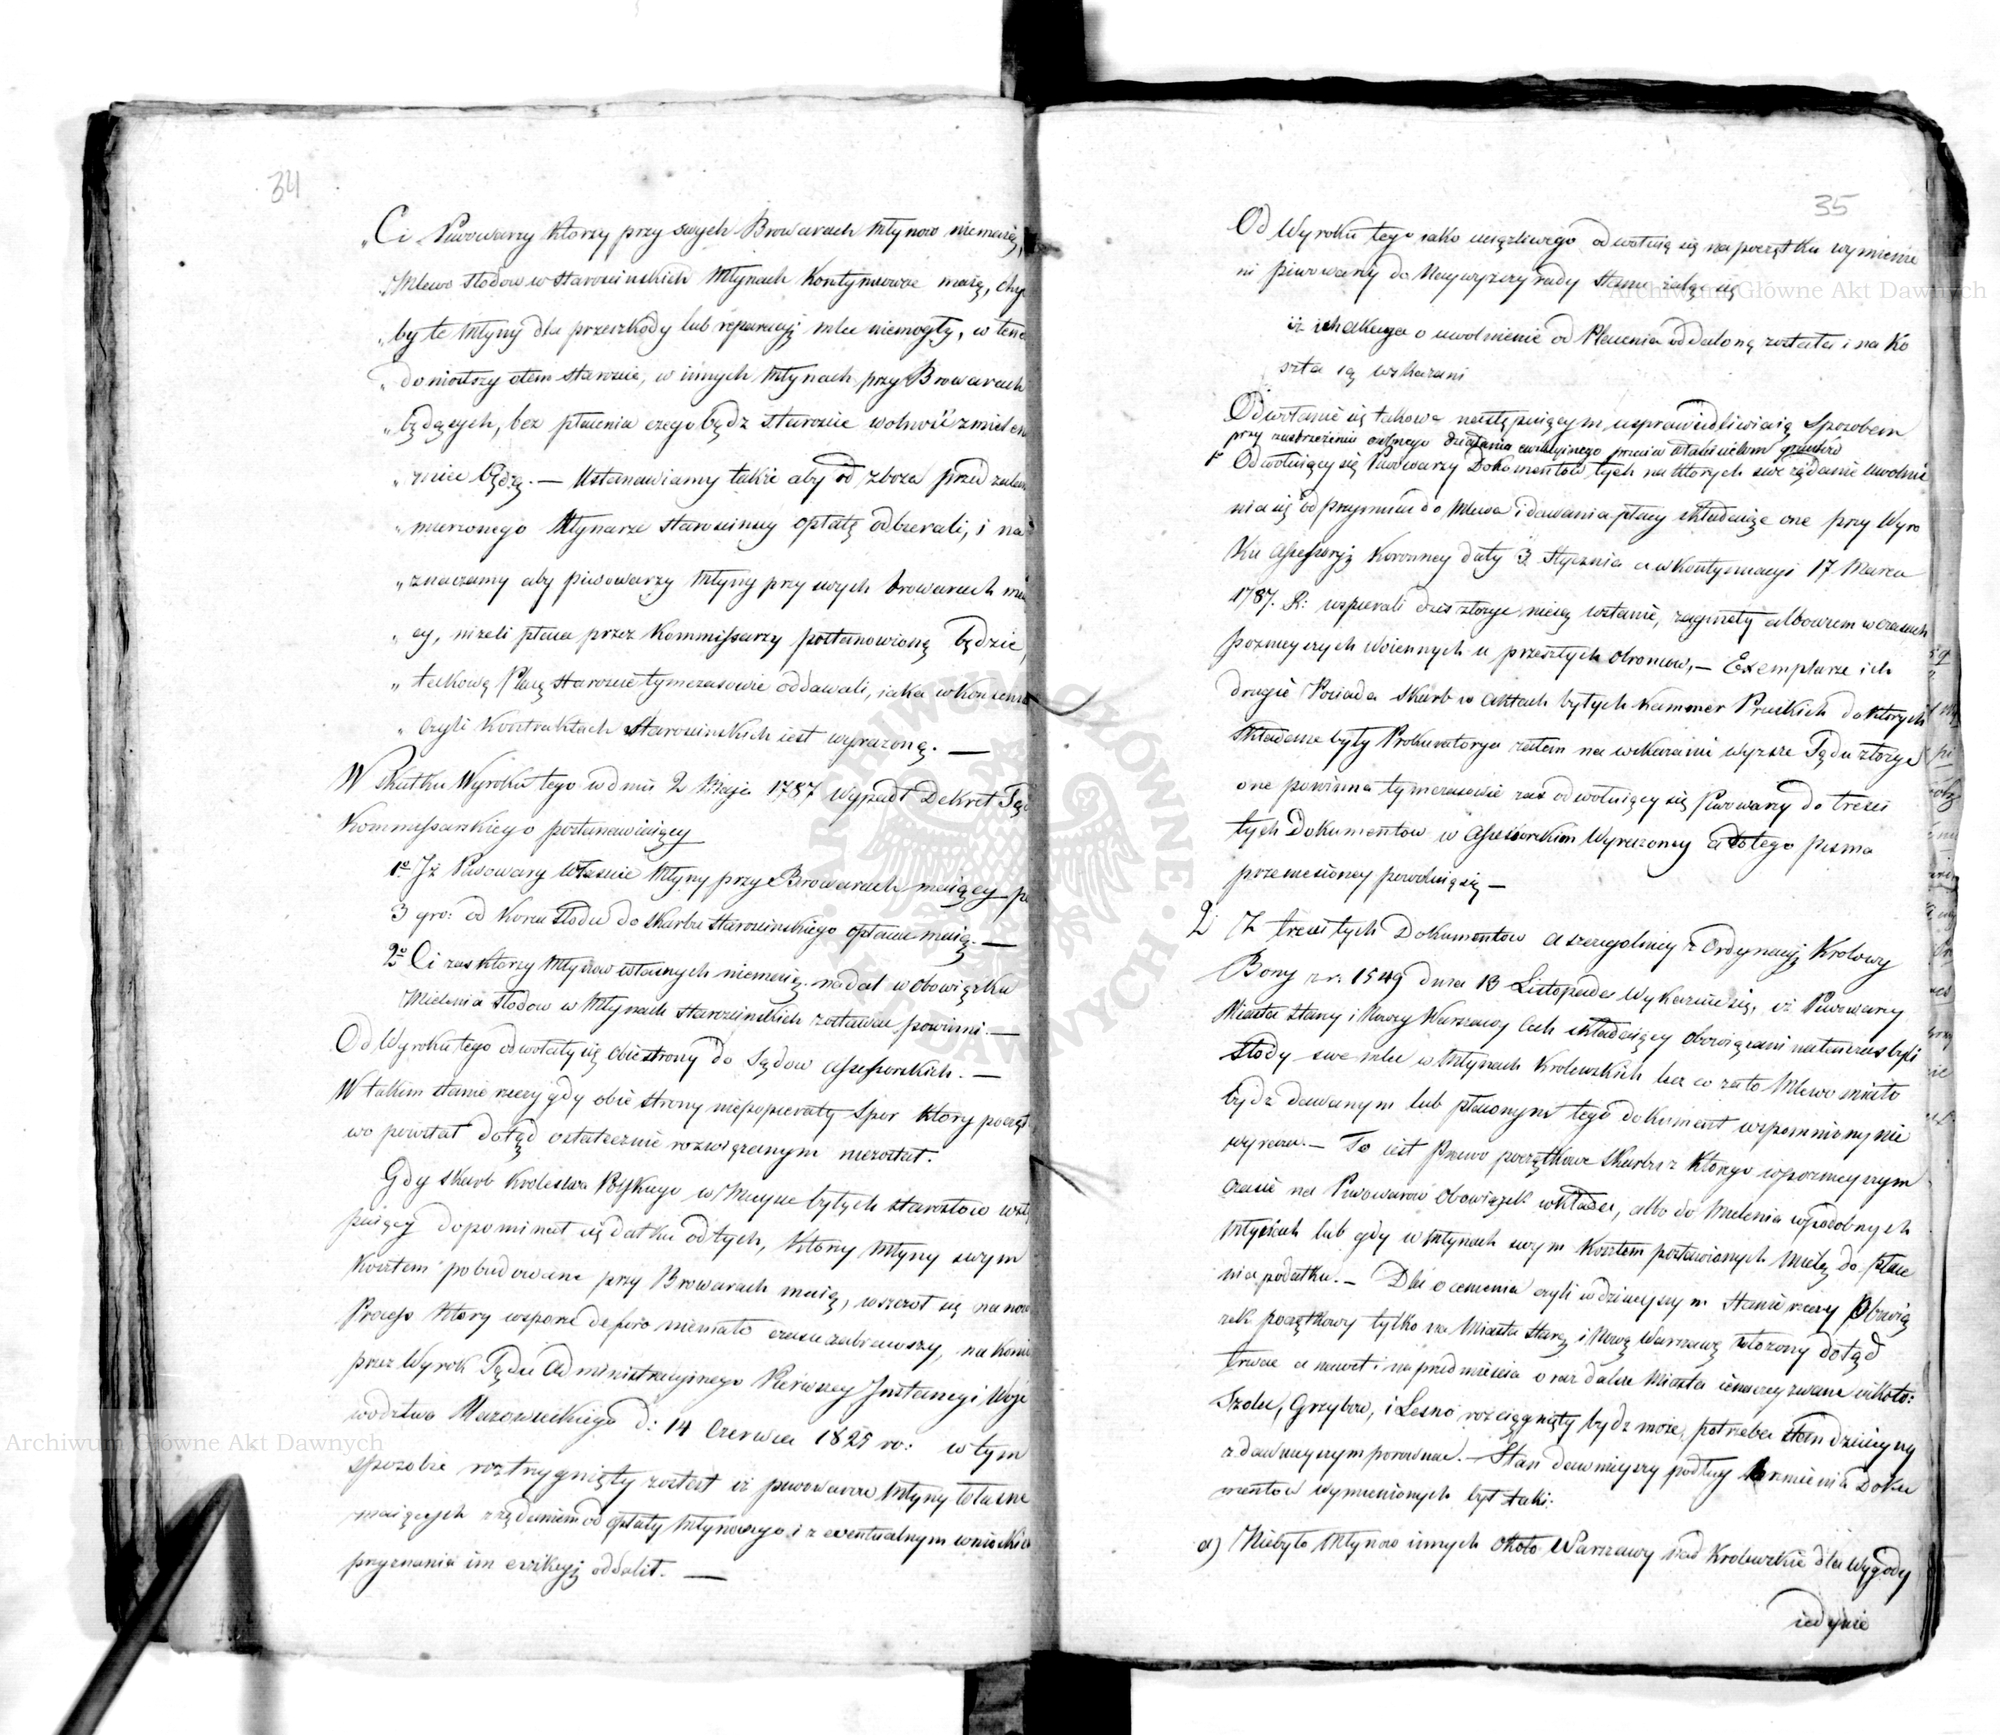 34
„Ci Piwowarzy którzy przy swych Browarach Młynow niemaią,
„Mlewo słodow w Starościnskich Młynach kontynuować maią, chy
„by te Młyny dla przeszkody lub reparacyi mleć niemogły, w ten
„doniosłszy otem Staroscie, w innych Młynach przy Browarach
„będących, bez płacenia czego bądz Staroscie wolność zmielen
„mieć będą. — Ustanawiamy także aby od zboza przed
„mierzonego Młynarze Starościnscy opłatę odbierali, i na
„znaczamy aby piwowarzy Młyny przy swych browarach ma
„cy, nizeli płaca przez Kommissarzy postanowioną będzie,
„takową Płacę Staroscie tymczasowie oddawali, iaka w
„czyli Kontraktach Starościnskich iest wyrazoną. —
W Skutku Wyroku tego w dniu 2 Maja 1787 wypadł Dekret Są
Kommissarskiego postanawiaiący
1º Iż Piwowary własne Młyny przy Browarach maiący po
3 gro: od Korca słodu do Skarbu Starościnskiego opłacać maią. —
2º Ci zas ktorzy Młynow własnych niemaią nadal w obowiązku
Mielenia słodow w Młynach Starościnskich zostawać powinni. —
Od Wyroku tego odwołały się obie strony do Sądow Assessorskich. —
W takim stanie rzeczy gdy obie strony niepopierały Spor który począt
wo powstał dotąd ostatecznie rozwiązanym niezostał.
Gdy Skarb Krolestwa Polskiego w Mieysce byłych Starostow wstę
puiący dopominał się datku od tych, którzy Młyny swym
kosztem pobudowane przy Browarach maią, wszczął się na now
Process ktory wsporze de foro niemało czasu zabrawszy, na koni
przez Wyrok Sądu Administracyjnego Pierwszey Instancyi Woje
wodztwa Mazowieckiego d: 14 Czerwca 1825 ro: w tym
sposobie roztrzygnięty został iż piwowarow Młyny własne
maiących z żądaniem od opłaty Młynowego i z ewentualnym wnioskie
przyznania im ewikcyi oddalił. —
35
Od Wyroku tego iako uciązliwego odwołuią się na początku wymienie
ni piwowarzy do Naywyższey rady Stanu żaląc się
iż ich akcya o uwolnienie od Płacenia oddaloną została i na Ko
szta są wskazani
Odwołanie się takowe następuiącym usprawiedliwiaią Sposobem
przy zastrzeżeniu osobnego działania ewikcyinego przeciw właścicielom gruntów
1º Odwołuiący się Piwowarzy Dokumentów tych na ktorych swe żądanie uwolnie
nia się od przymusu do Mlewa i dawania płacy składaiąc one przy Wyro
ku Assessoryi Koronney daty 3 Stycznia a w kontynuacyi 17 Marca
1787. R: wspierali dzis złozyc niesą wstanie, zaginęły albowiem w czasach
poznieyszych woiennych u przeszłych obroncow, — Exemplarze ich
drugie Posiada Skarb w aktach byłych Kammer Pruskich do ktorych
składane były Prokuratorya zatem na wskazanie wyzsze Sądu złozyc
one powinna tymczasowie zas odwołuiący się Piwowarzy do tresci
tych Dokumentow w Assessorskim Wyrazoney a do tego pisma
przeniesioney powołuią się —
2. Z tresci tych Dokumentow a szczegolniey z Ordynacyi Krolowy
Bony z r: 1549 dnia 13 Listopada Wykazuie się, iż Piwowary
Miasta Starey i Nowey Warszawy Cech składaiący obowiązani natenczas byli
słody swe mleć w Młynach Krolewskich lecz co zato Mlewo miało
bydz dawanym lub płaconym tego dokument wspomniony nie
wyraża. — To iest Prawo początkowe Skarbu z ktorego wpoznieyszym
czasie na Piwowarow Obowiązek wkłada, albo do Mielenia wpodobnych
Młynach lub gdy w Młynach swym Kosztem postawionych Mielą do płace
nia podatku. — Dla ocenienia czyli w dzisieyszym Stanie rzeczy Obowią
zek początkowy tylko na Miasta Starą i Nową Warszawę włozony dotąd
trwac a nawet i na przedmieścia oraz dalsze Miasta inaczey zwane iako to:
Szolec, Grzybow, i Leszno rozciągnięty bydz może, potrzeba stan dzisieyszy
z dawnieyszym porownac. — Stan dawnieyszy podług brzmienia Doku
mentow wymienionych był taki:
a) Niebyło Młynow innych około Warszawy nad Krolewskie dla wygody
iedynie
Archiwum Główne Akt Dawnych
Archiwum Główne Akt Dawnych
ARCHIWUM GŁÓWNE AKT DAWNYCH